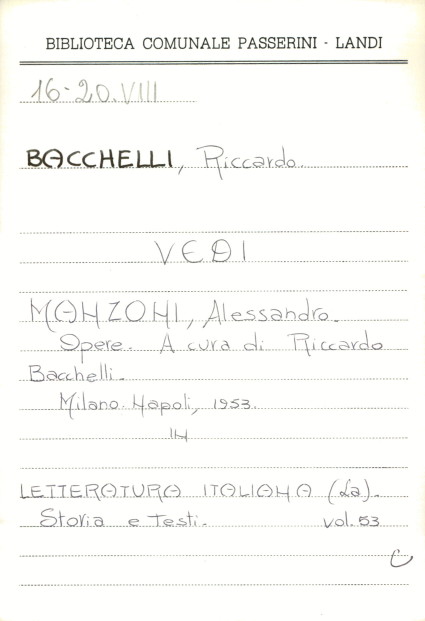 BIBLIOTECA COMUNALE PASSERINI - LANDI
16-20.VIII
BACCHELLI, Riccardo.
VEDI
MANZONI, Alessandro.
Opere. A cura di Riccardo
Bacchelli.
Milano. Napoli, 1953.
IN
LETTERATURA ITALIANA (La).
Storia e Testi. vol. 53
C